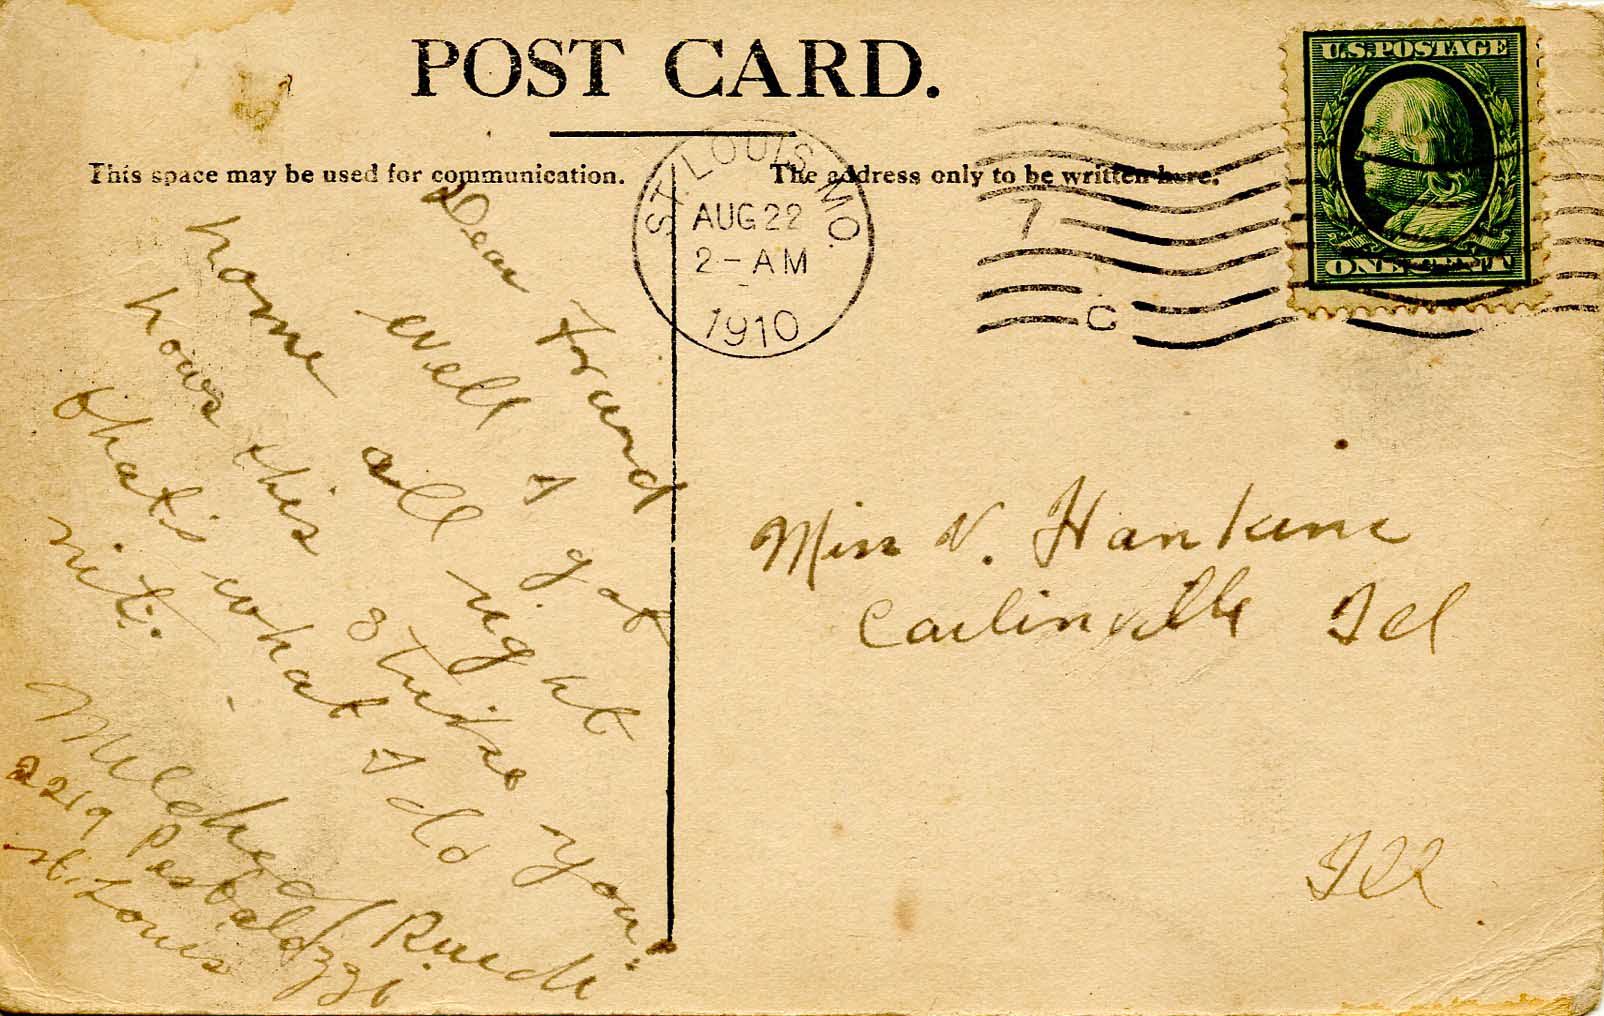 POST CARD.
This space may be used for communication.
The address only to be written here.
U.S. POSTAGE
ONE CENT
ST. LOUIS, MO.
AUG 22
2 - AM
1910
7
C
Dear Friend
Well I got
home all right
hows this strike you.
that's what I do
nit.
Mildred Ruedi
2219 Pestalozzi
St. Louis
Miss V. Hankins
Carlinville Ill
Ill